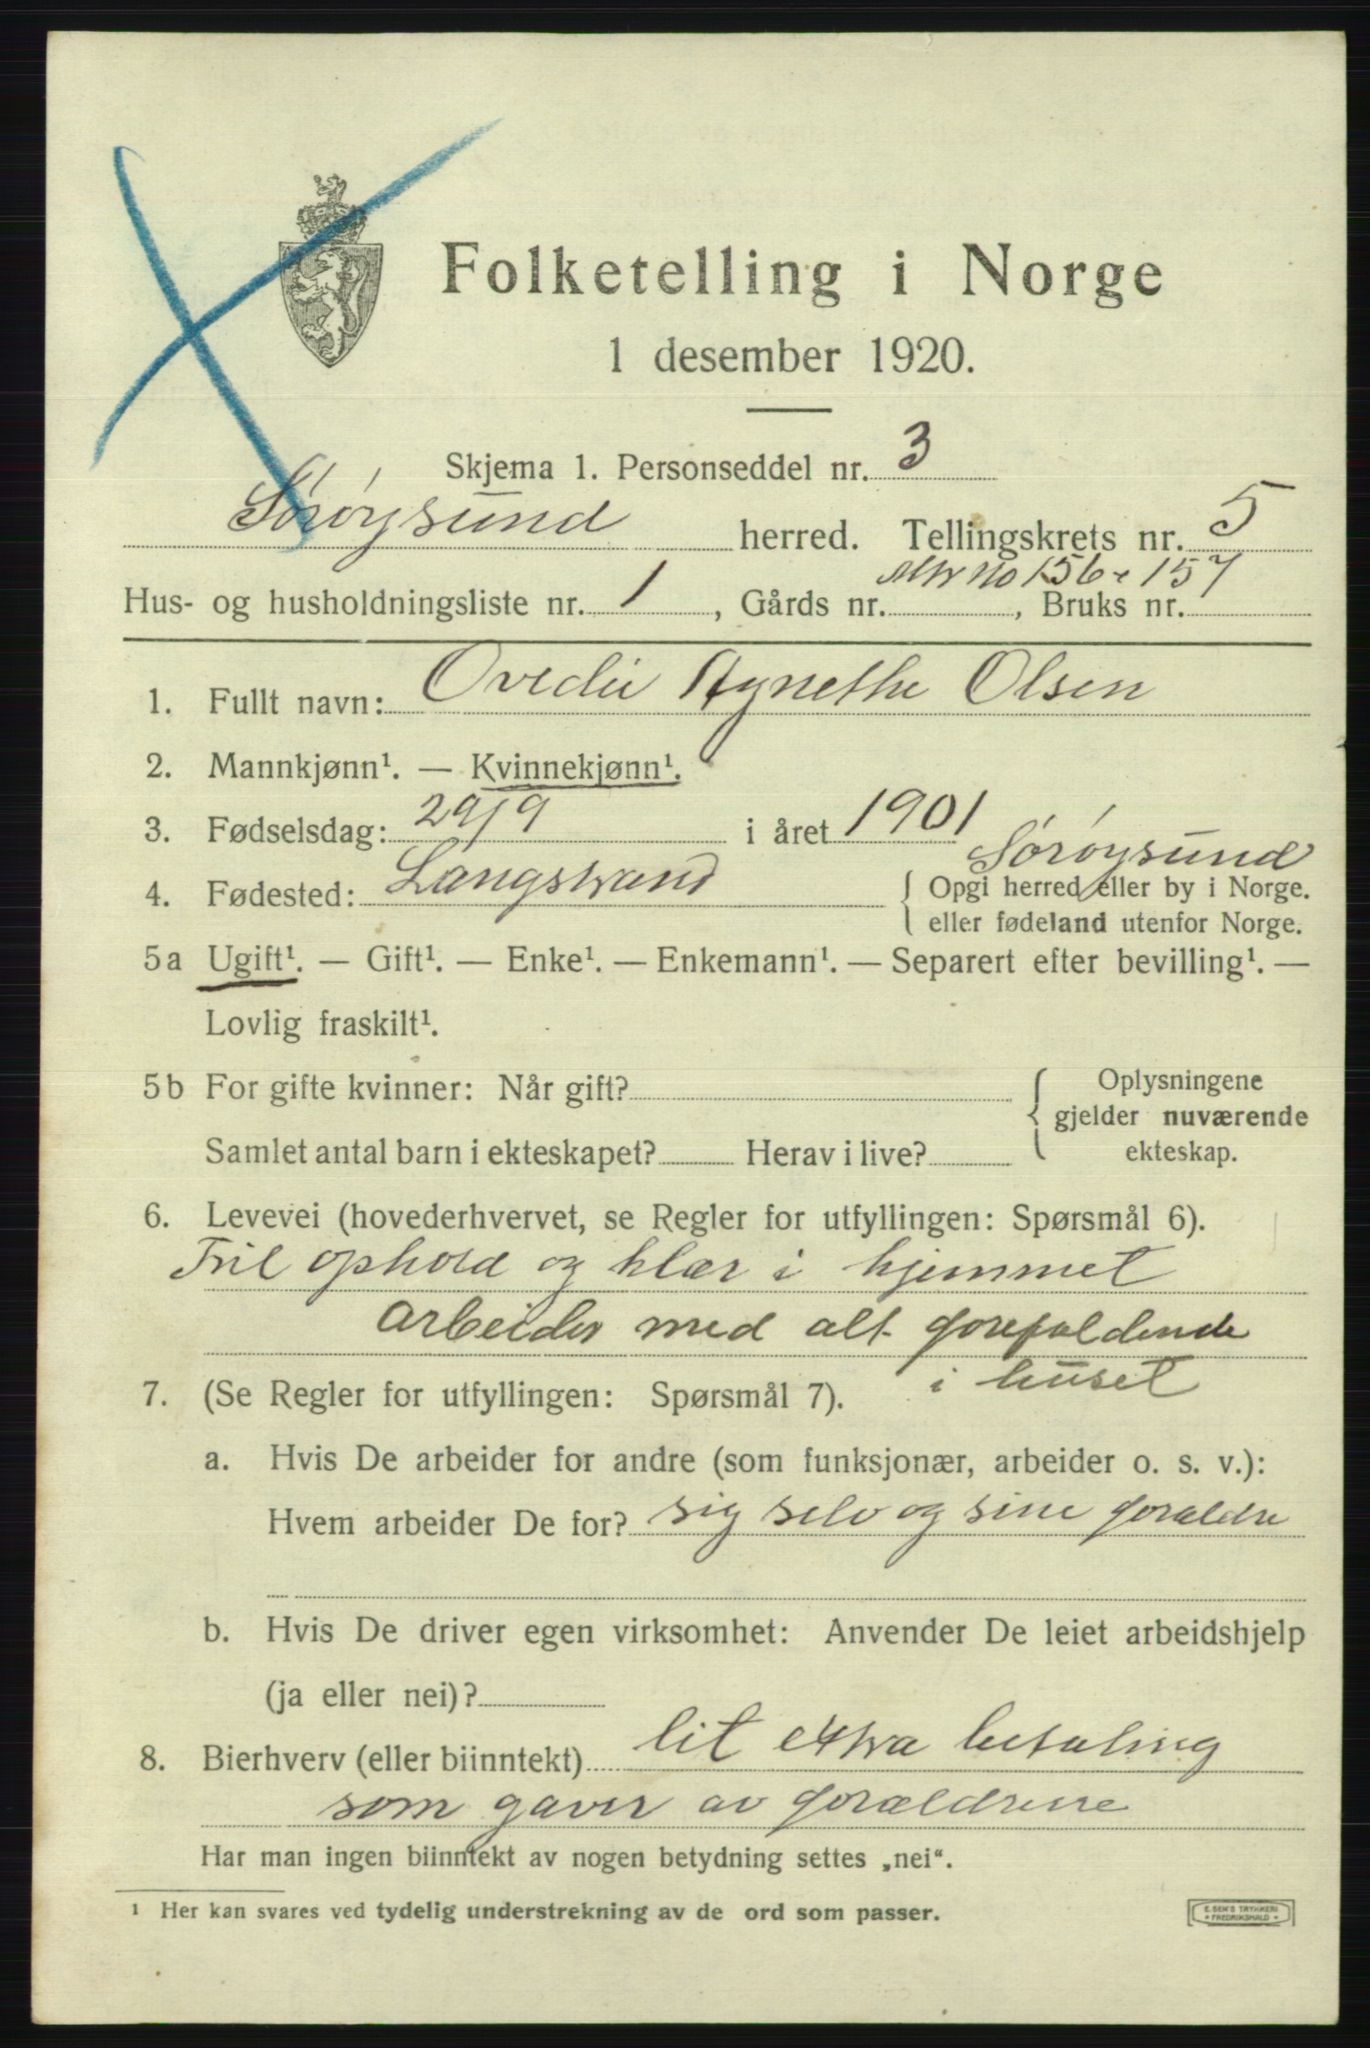 Folketelling i Norge
1 desember 1920.
Skjema 1. Personseddel nr. 3
Sørøysund herred. Tellingskrets nr. 5
Hus- og husholdningsliste nr. 1, Gårds nr. Mtr no 156 & 157, Bruks nr.
1. Fullt navn: Ovedie Agnethe Olsen
2. Mannkjønn¹. — Kvinnekjønn¹.
3. Fødselsdag: 29/9 i året 1901
4. Fødested: Langstrand Sørøysund
{ Opgi herred eller by i Norge.
eller fødeland utenfor Norge.
5a Ugift¹. — Gift¹. — Enke¹. — Enkemann¹. — Separert efter bevilling¹. —
Lovlig fraskilt¹.
5b For gifte kvinner: Når gift?
Samlet antal barn i ekteskapet? Herav i live?
{ Oplysningene
gjelder nuværende
ekteskap.
6. Levevei (hovederhvervet, se Regler for utfyllingen: Spørsmål 6).
Frit ophold og klær i hjemmet
arbeider med alt forefaldende
i huset
7. (Se Regler for utfyllingen: Spørsmål 7).
a. Hvis De arbeider for andre (som funksjonær, arbeider o. s. v.):
Hvem arbeider De for? sig selv og sine forældre
b. Hvis De driver egen virksomhet: Anvender De leiet arbeidshjelp
(ja eller nei)?
8. Bierhverv (eller biinntekt) lit extra betaling
som gaver av forældrene
Har man ingen biinntekt av nogen betydning settes „nei“.
¹ Her kan svares ved tydelig understrekning av de ord som passer.
E. SEM'S TRYKKERI
FREDRIKSHALD